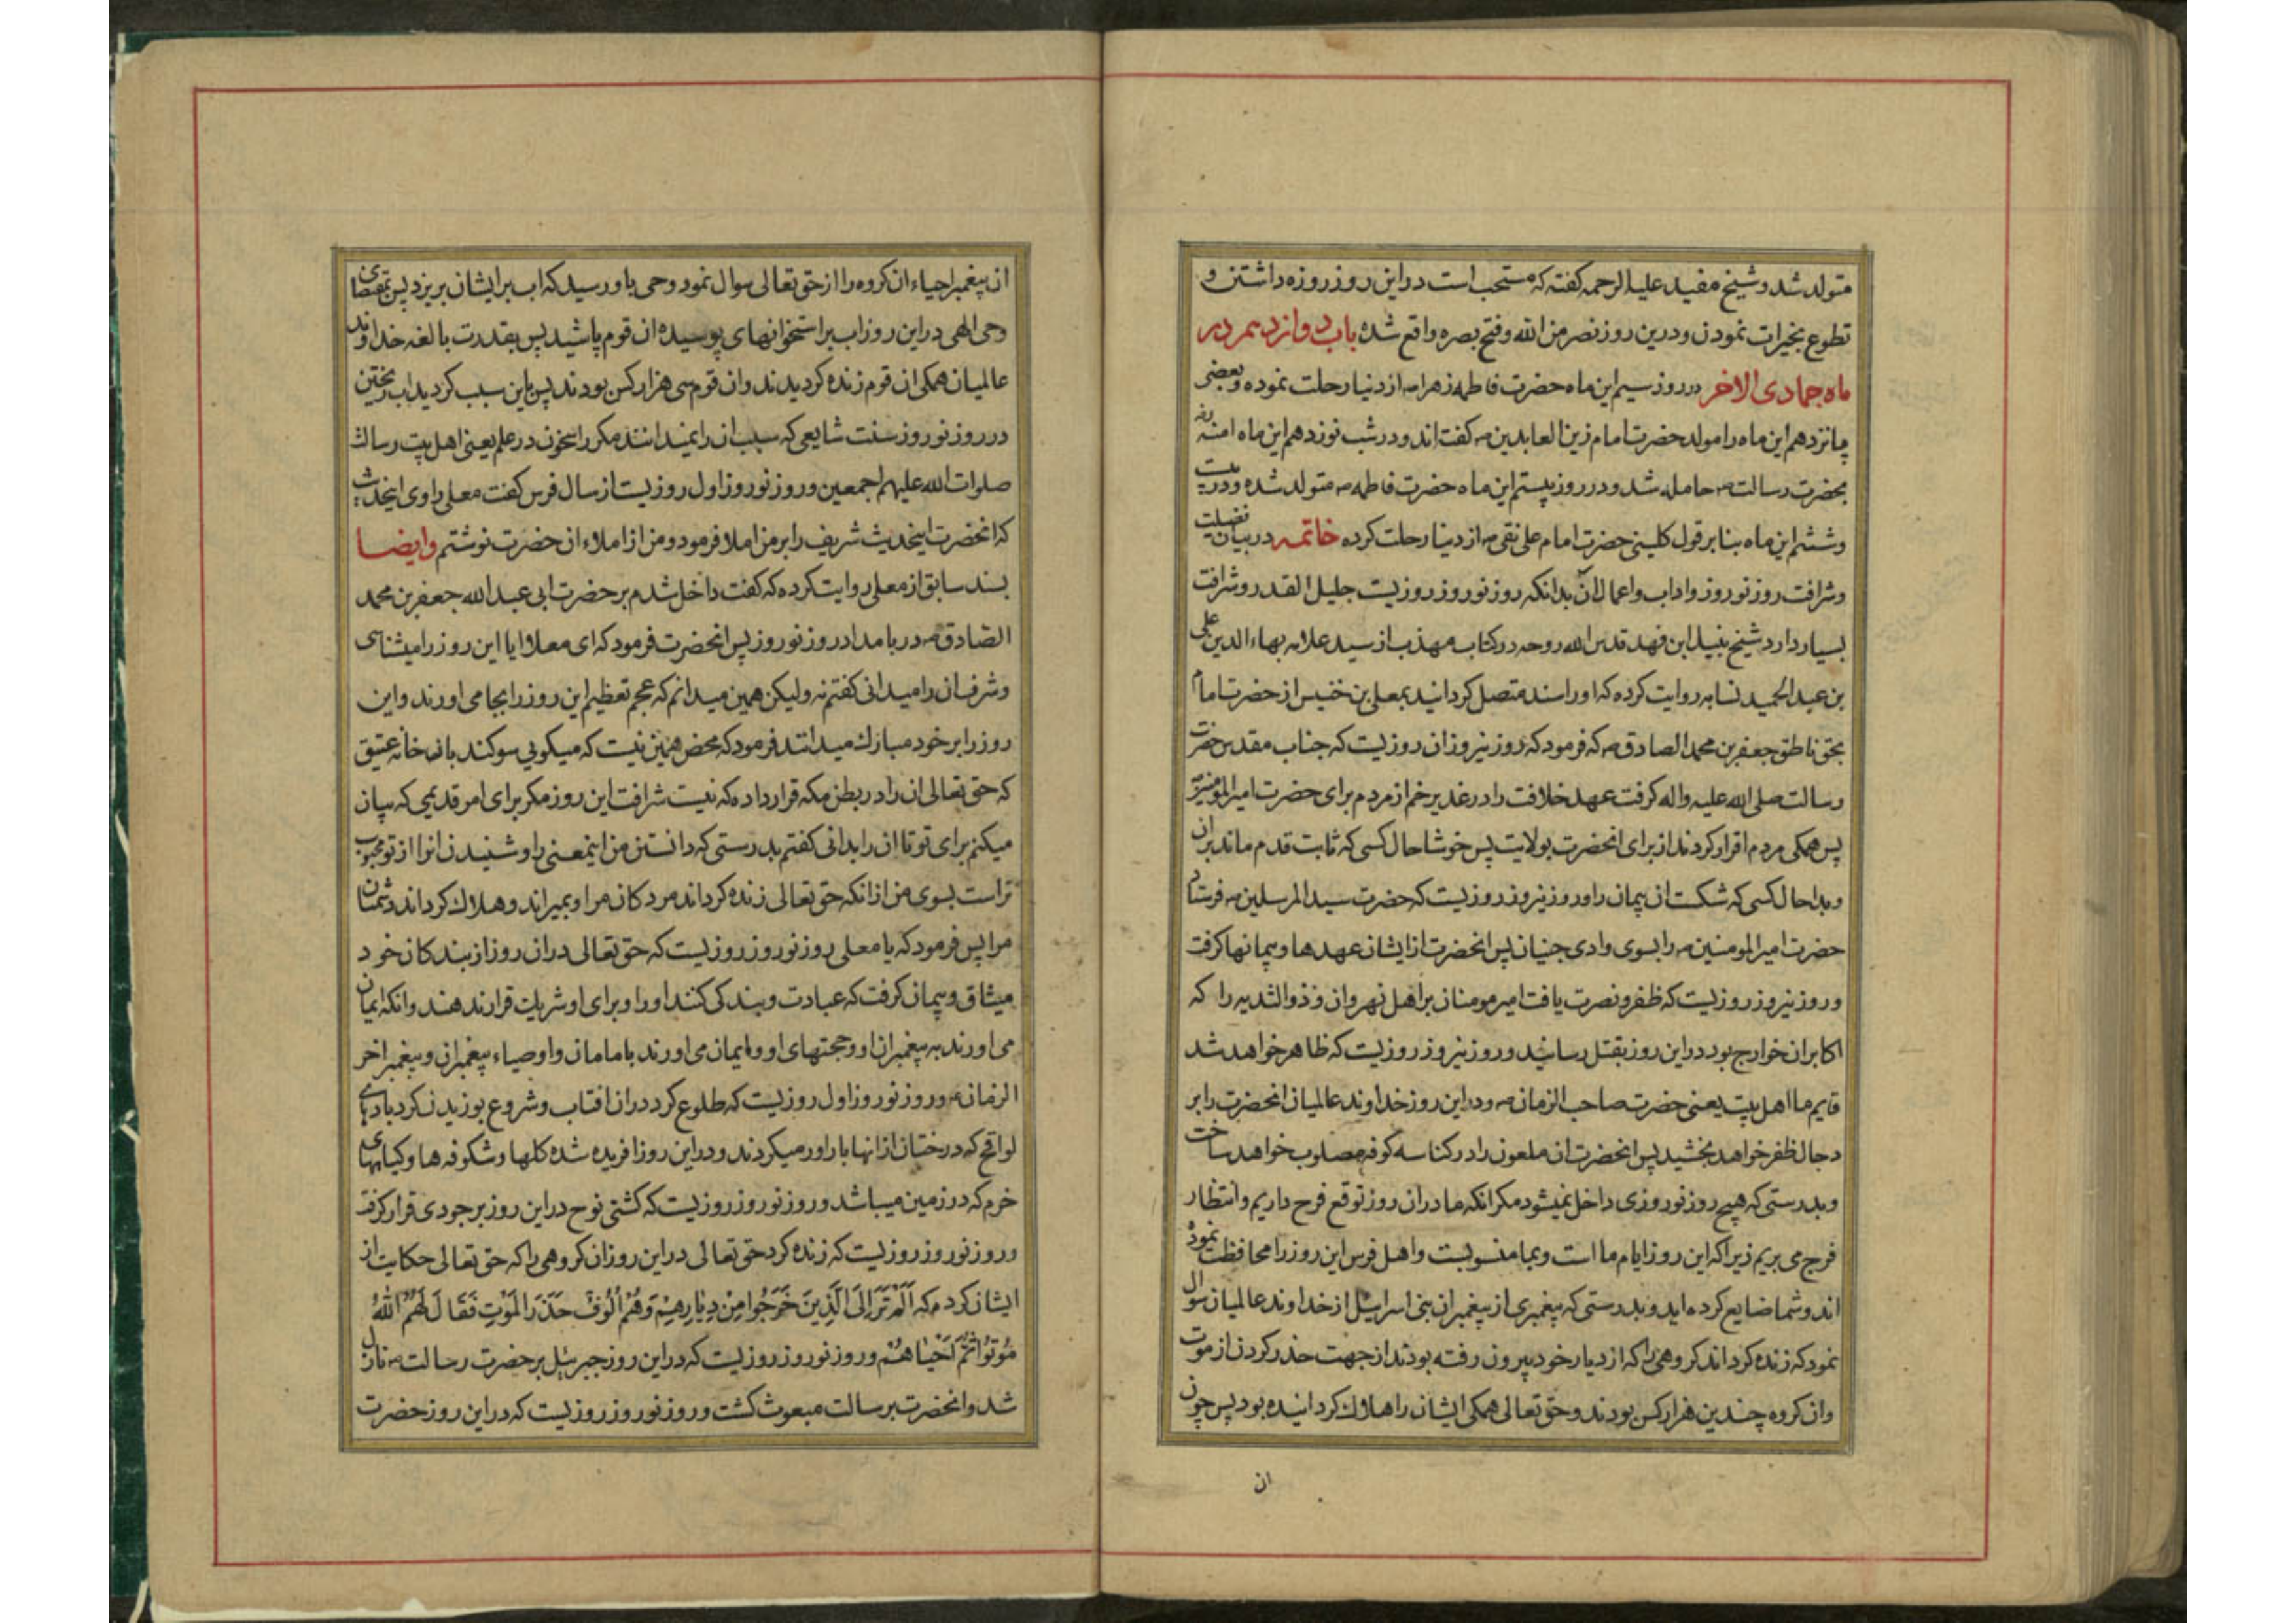 متولد شد و شیخ مفید علیه الرحمه کفته که مستحب است در این روز روزه داشتن و
تطوع بخیرات نمودن و درین روز نصر من الله و فتح بصره واقع شده باب دوازدیمر در
ماه جمادی الاخر در روز سیم این ماه حضرت فاطمه زهرا ص از دنیا رحلت نموده و بعضی
پانزدهم این ماه را مولد حضرت امام زین العابدین ص کفته اند و در شب نوزدهم این ماه امنه
بحضرت رسالت ص حامله شد و در روز بیستم این ماه حضرت فاطمه ص متولد شده و در بیست
و ششم این ماه بنا بر قول کلینی حضرت امام علی نقی ص از دنیا رحلت کرده خاتمه در بیان فضیلت
و شرافت روز نوروز و اداب و اعمال آن بدانکه روز نوروز روزیست جلیل القدر و شرافت
بسیار دارد شیخ نبیل ابن فهد قدس الله روحه در کتاب مهذب از سید علامه بهاء الدین علی
بن عبد الحمید نسابه روایت کرده که او را سند متصل کردانید بمعلی بن خنیس از حضرت امام
بحق ناطق جعفر بن محمد الصادق ص که فرمود که روز نیروز ان روزیست که جناب مقدس حضرت
رسالت صلی الله علیه و اله کرفت عهد خلافت را در غدیر خم از مردم برای حضرت امیر المومنین
پس همکی مردم اقرار کردند از برای انحضرت بولایت پس خوشا حال کسی که ثابت قدم ماند بر ان
و بدا حال کسی که شکست ان پیمان را و روز نیروز روزیست که حضرت سید المرسلین ص فرستاد
حضرت امیر المومنین ص را بسوی وادی جنیان پس انحضرت از ایشان عهدها و پیمانها کرفت
و روز نیروز روزیست که ظفر و نصرت یافت امیر مومنان بر اهل نهروان و ذو الثدیه را که
اکابر ان خوارج بود در این روز بقتل رسانید و روز نیروز روزیست که ظاهر خواهد شد
قایم ما اهل بیت یعنی حضرت صاحب الزمان ص و در این روز خداوند عالمیان انحضرت را بر
دجال ظفر خواهد بخشید پس انحضرت ان ملعون را در کناسه کوفه مصلوب خواهد ساخت
و بدرستی که هیچ روز نوروزی داخل نمیشود مکر انکه ما در ان روز توقع فرح داریم و انتظار
فرج می بریم زیرا که این روز ایام ما است و بما منسوبست و اهل فرس این روز را محافظت نموده
اند و شما ضایع کرده اید و بدرستی که پیغمبری از پیغمبران بنی اسرائیل از خداوند عالمیان سوال
نمود که زنده کرداند کروهی را که از دیار خود بیرون رفته بودند از جهت حذر کردن از موت
و ان کروه چندین هزار کس بودند و حق تعالی همکی ایشان را هلاک کردانیده بود پس چون
ان
ان پیغمبر احیاء ان کروه را از حق تعالی سوال نمود وحی باو رسید که اب بر ایشان بریزد پس بمقتضای
وحی الهی در این روز اب بر استخوانهای پوسیده ان قوم پاشید پس بقدرت بالغه خداوند
عالمیان همکی ان قوم زنده کردیدند و ان قوم سی هزار کس بودند پس باین سبب کردید اب ریختن
در روز نوروز سنت شایعی که سبب ان را نمیدانند مکر راسخون در علم یعنی اهل بیت رسالت
صلوات الله علیهم اجمعین و روز نوروز اول روزیست از سال فرس کفت معلی راوی اینحدیث
که انحضرت اینحدیث شریف را بر من املا فرمود و من از املاء ان حضرت نوشتم و ایضا
بسند سابق از معلی روایت کرده که کفت داخل شدم بر حضرت ابی عبد الله جعفر بن محمد
الصادق ص در بامداد روز نوروز پس انحضرت فرمود که ای معلا ایا این روز را میشناسی
و شرف ان را میدانی کفتم نه ولیکن همین میدانم که عجم تعظیم این روز را بجا می اورند و این
روز را بر خود مبارک میدانند فرمود که محض همین نیست که میکویی سوکند بان خانه عتیق
که حق تعالی ان را در بطن مکه قرار داده که نیست شرافت این روز مکر برای امر قدیمی که بیان
میکنم برای تو تا ان را بدانی کفتم بدرستی که دانستن من اینمعنی را و شنیدن انرا از تو محبوب
تر است بسوی من از انکه حق تعالی زنده کرداند مردکان مرا و بمیراند و هلاک کرداند دشمنان
مرا پس فرمود که یا معلی روز نوروز روزیست که حق تعالی در ان روز از بندکان خود
میثاق و پیمان کرفت که عبادت و بندکی کنند او را و برای او شریک قرار ندهند و انکه ایمان
می اورند به پیغمبران او و حجتهای او و ایمان می اورند بامامان و اوصیاء پیغمبران و پیغمبر اخر
الزمان ص و روز نوروز اول روزیست که طلوع کرد در ان افتاب و شروع بوزیدن کرد بادهای
لواقح که درختان از انها باراور میکردند و در این روز افریده شده کلها و شکوفه ها و کیاههای
خرم که در زمین میباشد و روز نوروز روزیست که کشتی نوح در این روز بر جودی قرار کرفت
و روز نوروز روزیست که زنده کرد حق تعالی در این روز ان کروهی را که حق تعالی حکایت از
ایشان کرده که اَلَمْ تَرَ اِلَی الَّذینَ خَرَجُوا مِنْ دِیارِهِمْ وَهُمْ اُلُوفٌ حَذَرَ الْمَوْتِ فَقالَ لَهُمُ اللّهُ
مُوتُوا ثُمَّ اَحْیاهُمْ و روز نوروز روزیست که در این روز جبرئیل بر حضرت رسالت ص نازل
شد و انحضرت برسالت مبعوث کشت و روز نوروز روزیست که در این روز حضرت